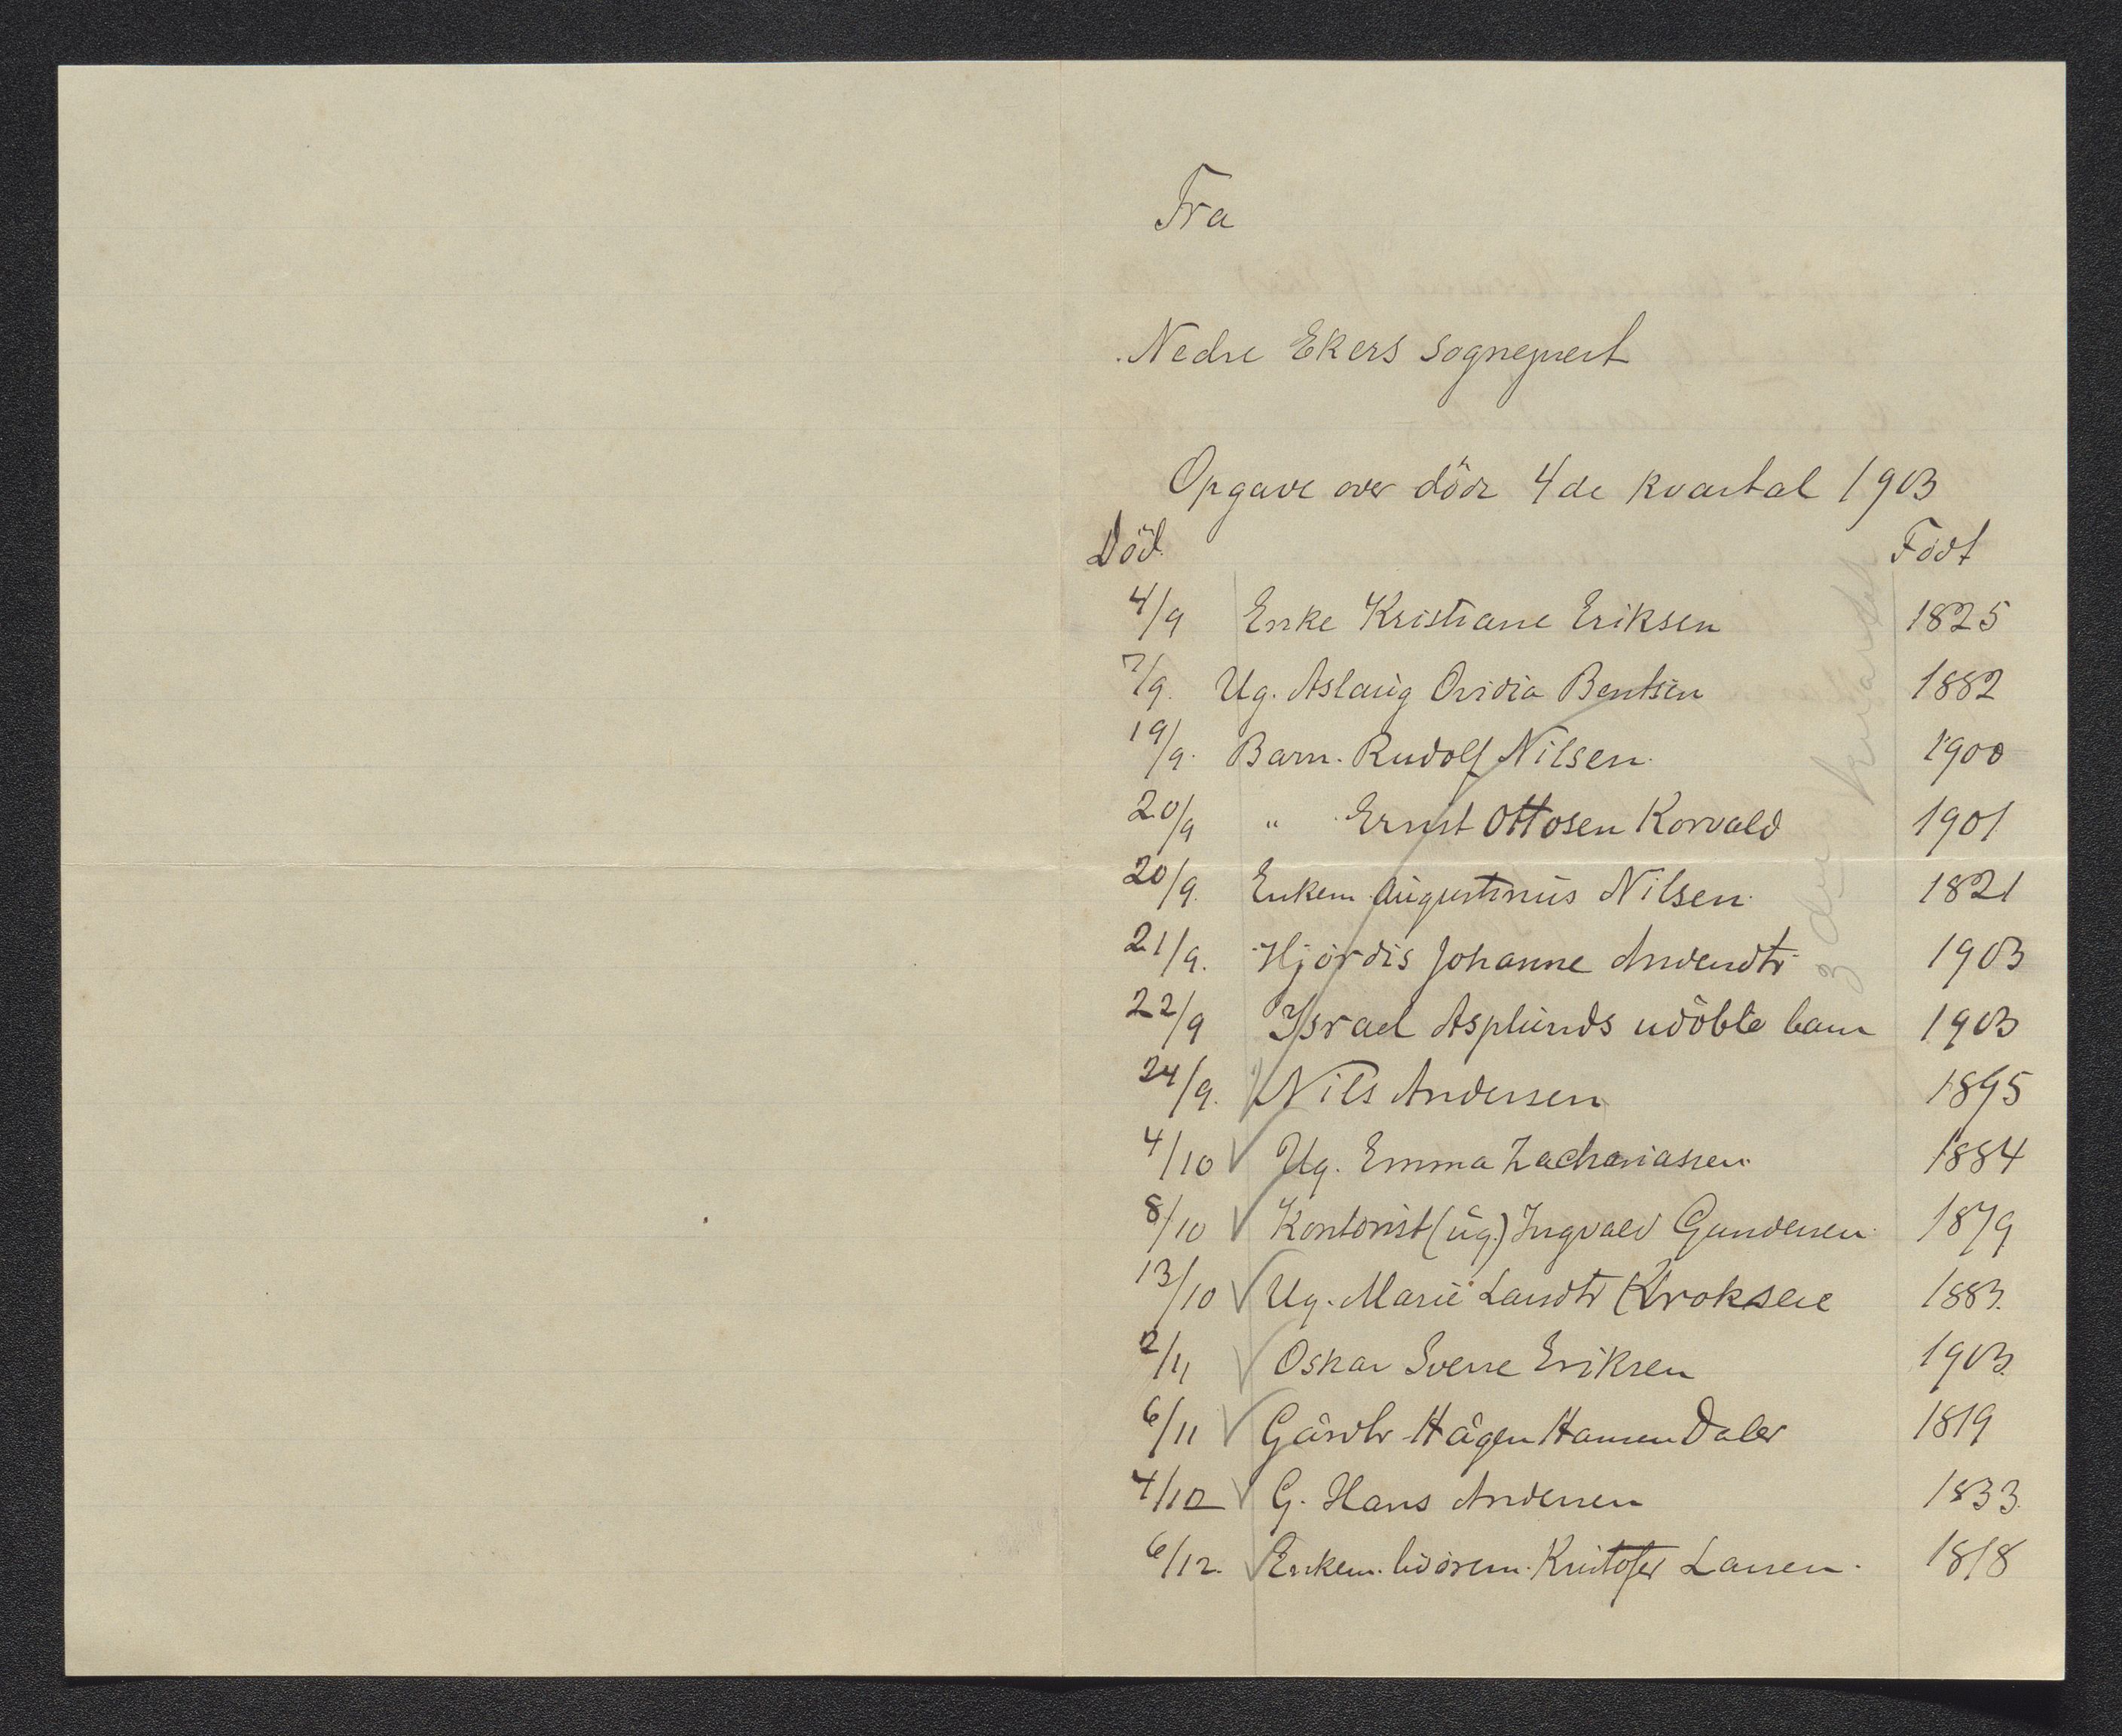 Fra
Nedre Ekers sogneprest
Opgave over döde 4de kvartal 1903
Död. Födt
4/9 Enke Kristiane Eriksen 1825
7/9. Ug. Aslaug Ovidia Bentsen 1882
19/9. Barn. Rudolf Nilsen. 1900
20/9 " Ernst Ottosen Korvald 1901
20/9. Enkem. Augustinus Nilsen. 1821
21/9. Hjördis Johanne 1903
22/9 Israel Asplunds udöbte barn 1903
24/9. Nils Andersen 1895
4/10 Ug. Emma Zachariassen. 1884
8/10 Kontorist (ug.) Ingvald Gundersen. 1879
13/10 Ug. Marie Larsdtr Krokseie 1883.
2/11 Oskar Sverre Eriksen 1903.
6/11 Gårdbr. Hågen Hansen Daler 1819
4/12 G. Hans Andersen 1833.
6/12. Enkem. Kristofer Larsen. 1818
3die kvartal